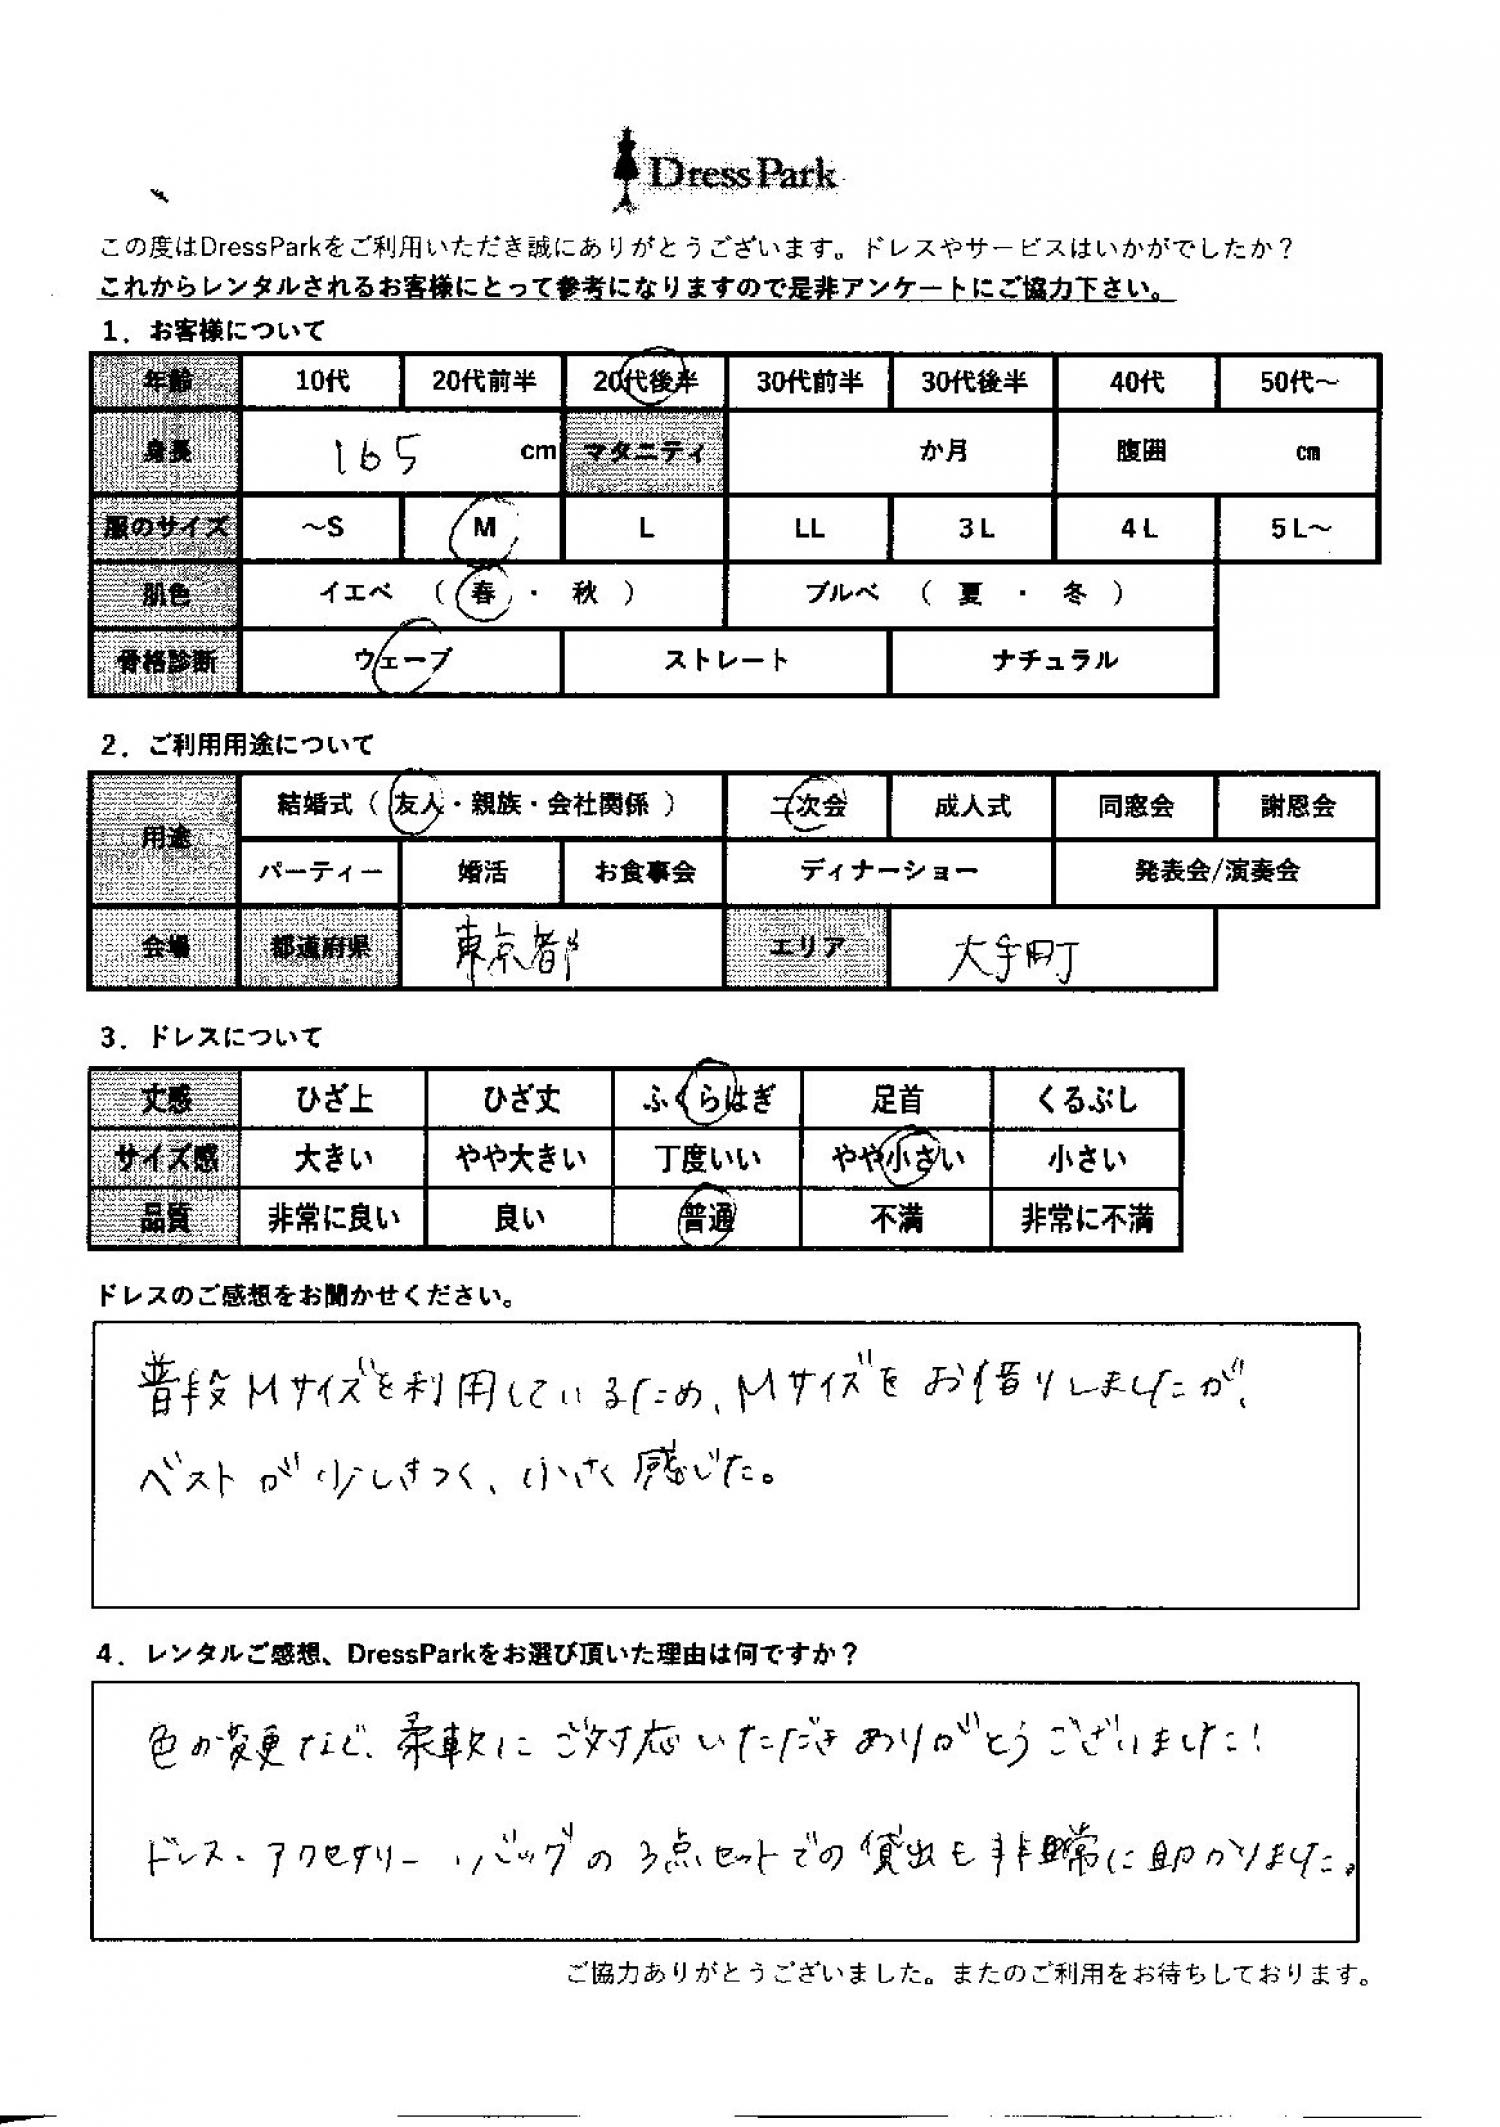 DressPark
この度はDressParkをご利用いただき誠にありがとうございます。ドレスやサービスはいかがでしたか？
これからレンタルされるお客様にとって参考になりますので是非アンケートにご協力下さい。
1．お客様について
年齢 10代 20代前半 20代後半 30代前半 30代後半 40代 50代～
身長 165 cm マタニティ か月 腹囲 cm
服のサイズ ～S M L LL 3L 4L 5L～
肌色 イエベ （ 春 ・ 秋 ） ブルベ （ 夏 ・ 冬 ）
骨格診断 ウェーブ ストレート ナチュラル
2．ご利用用途について
用途 結婚式（ 友人・親族・会社関係 ） 二次会 成人式 同窓会 謝恩会
パーティー 婚活 お食事会 ディナーショー 発表会/演奏会
会場 都道府県 東京都 エリア 大手町
3．ドレスについて
丈感 ひざ上 ひざ丈 ふくらはぎ 足首 くるぶし
サイズ感 大きい やや大きい 丁度いい やや小さい 小さい
品質 非常に良い 良い 普通 不満 非常に不満
ドレスのご感想をお聞かせください。
普段Mサイズを利用しているため、Mサイズをお借りしましたが、
ベストが少しきつく、小さく感じた。
4．レンタルご感想、DressParkをお選び頂いた理由は何ですか？
色の変更など、柔軟にご対応いただきありがとうございました！
ドレス・アクセサリー・バッグの3点セットでの貸出も非常に助かりました。
ご協力ありがとうございました。またのご利用をお待ちしております。